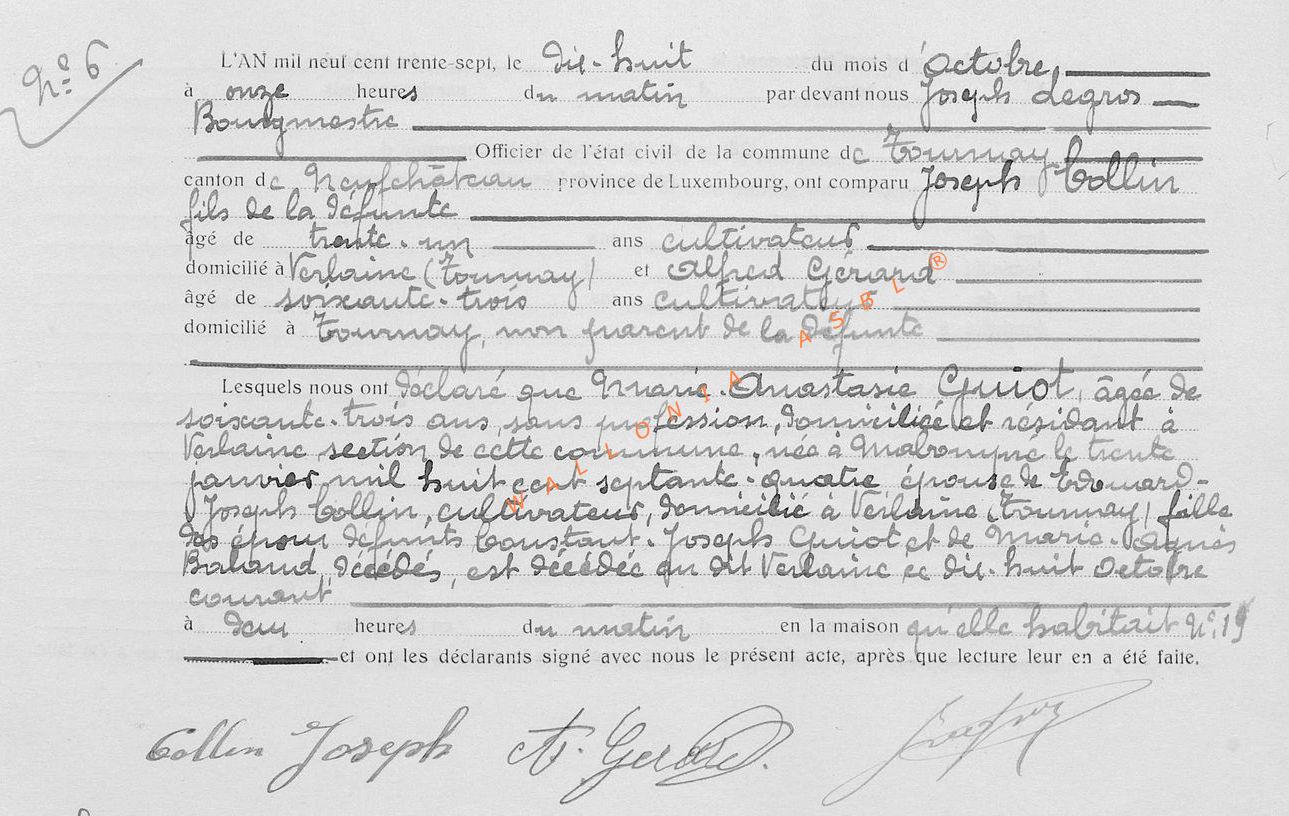 Nº 6
L'AN mil neuf cent trente-sept, le dix-huit du mois d'Octobre,
à onze heures du matin par devant nous Joseph Legros
Bourgmestre
Officier de l'état civil de la commune de Tournay
canton de Neufchâteau province de Luxembourg, ont comparu Joseph Collin
fils de la défunte
âgé de trente-un ans cultivateur
domicilié à Verlaine (Tournay) et Alfred Gérard
âgé de soixante-trois ans cultivateur
domicilié à Tournay, non parent de la défunte
Lesquels nous ont déclaré que Marie-Anastasie Guiot, âgée de
soixante-trois ans, sans profession, domiciliée et résidant à
Verlaine section de cette commune, née à Malrompré le trente
janvier mil huit cent septante-quatre épouse de Edouard-
Joseph Collin, cultivateur, domicilié à Verlaine (Tournay) fille
des époux défunts Constant-Joseph Guiot et de Marie-Agnès
Baland, décédés, est décédée au dit Verlaine ce dix-huit octobre
courant
à deux heures du matin en la maison qu'elle habitait Nº 19
et ont les déclarants signé avec nous le présent acte, après que lecture leur en a été faite.
Collin Joseph A. Gerard
WALLONIA ASBL ®